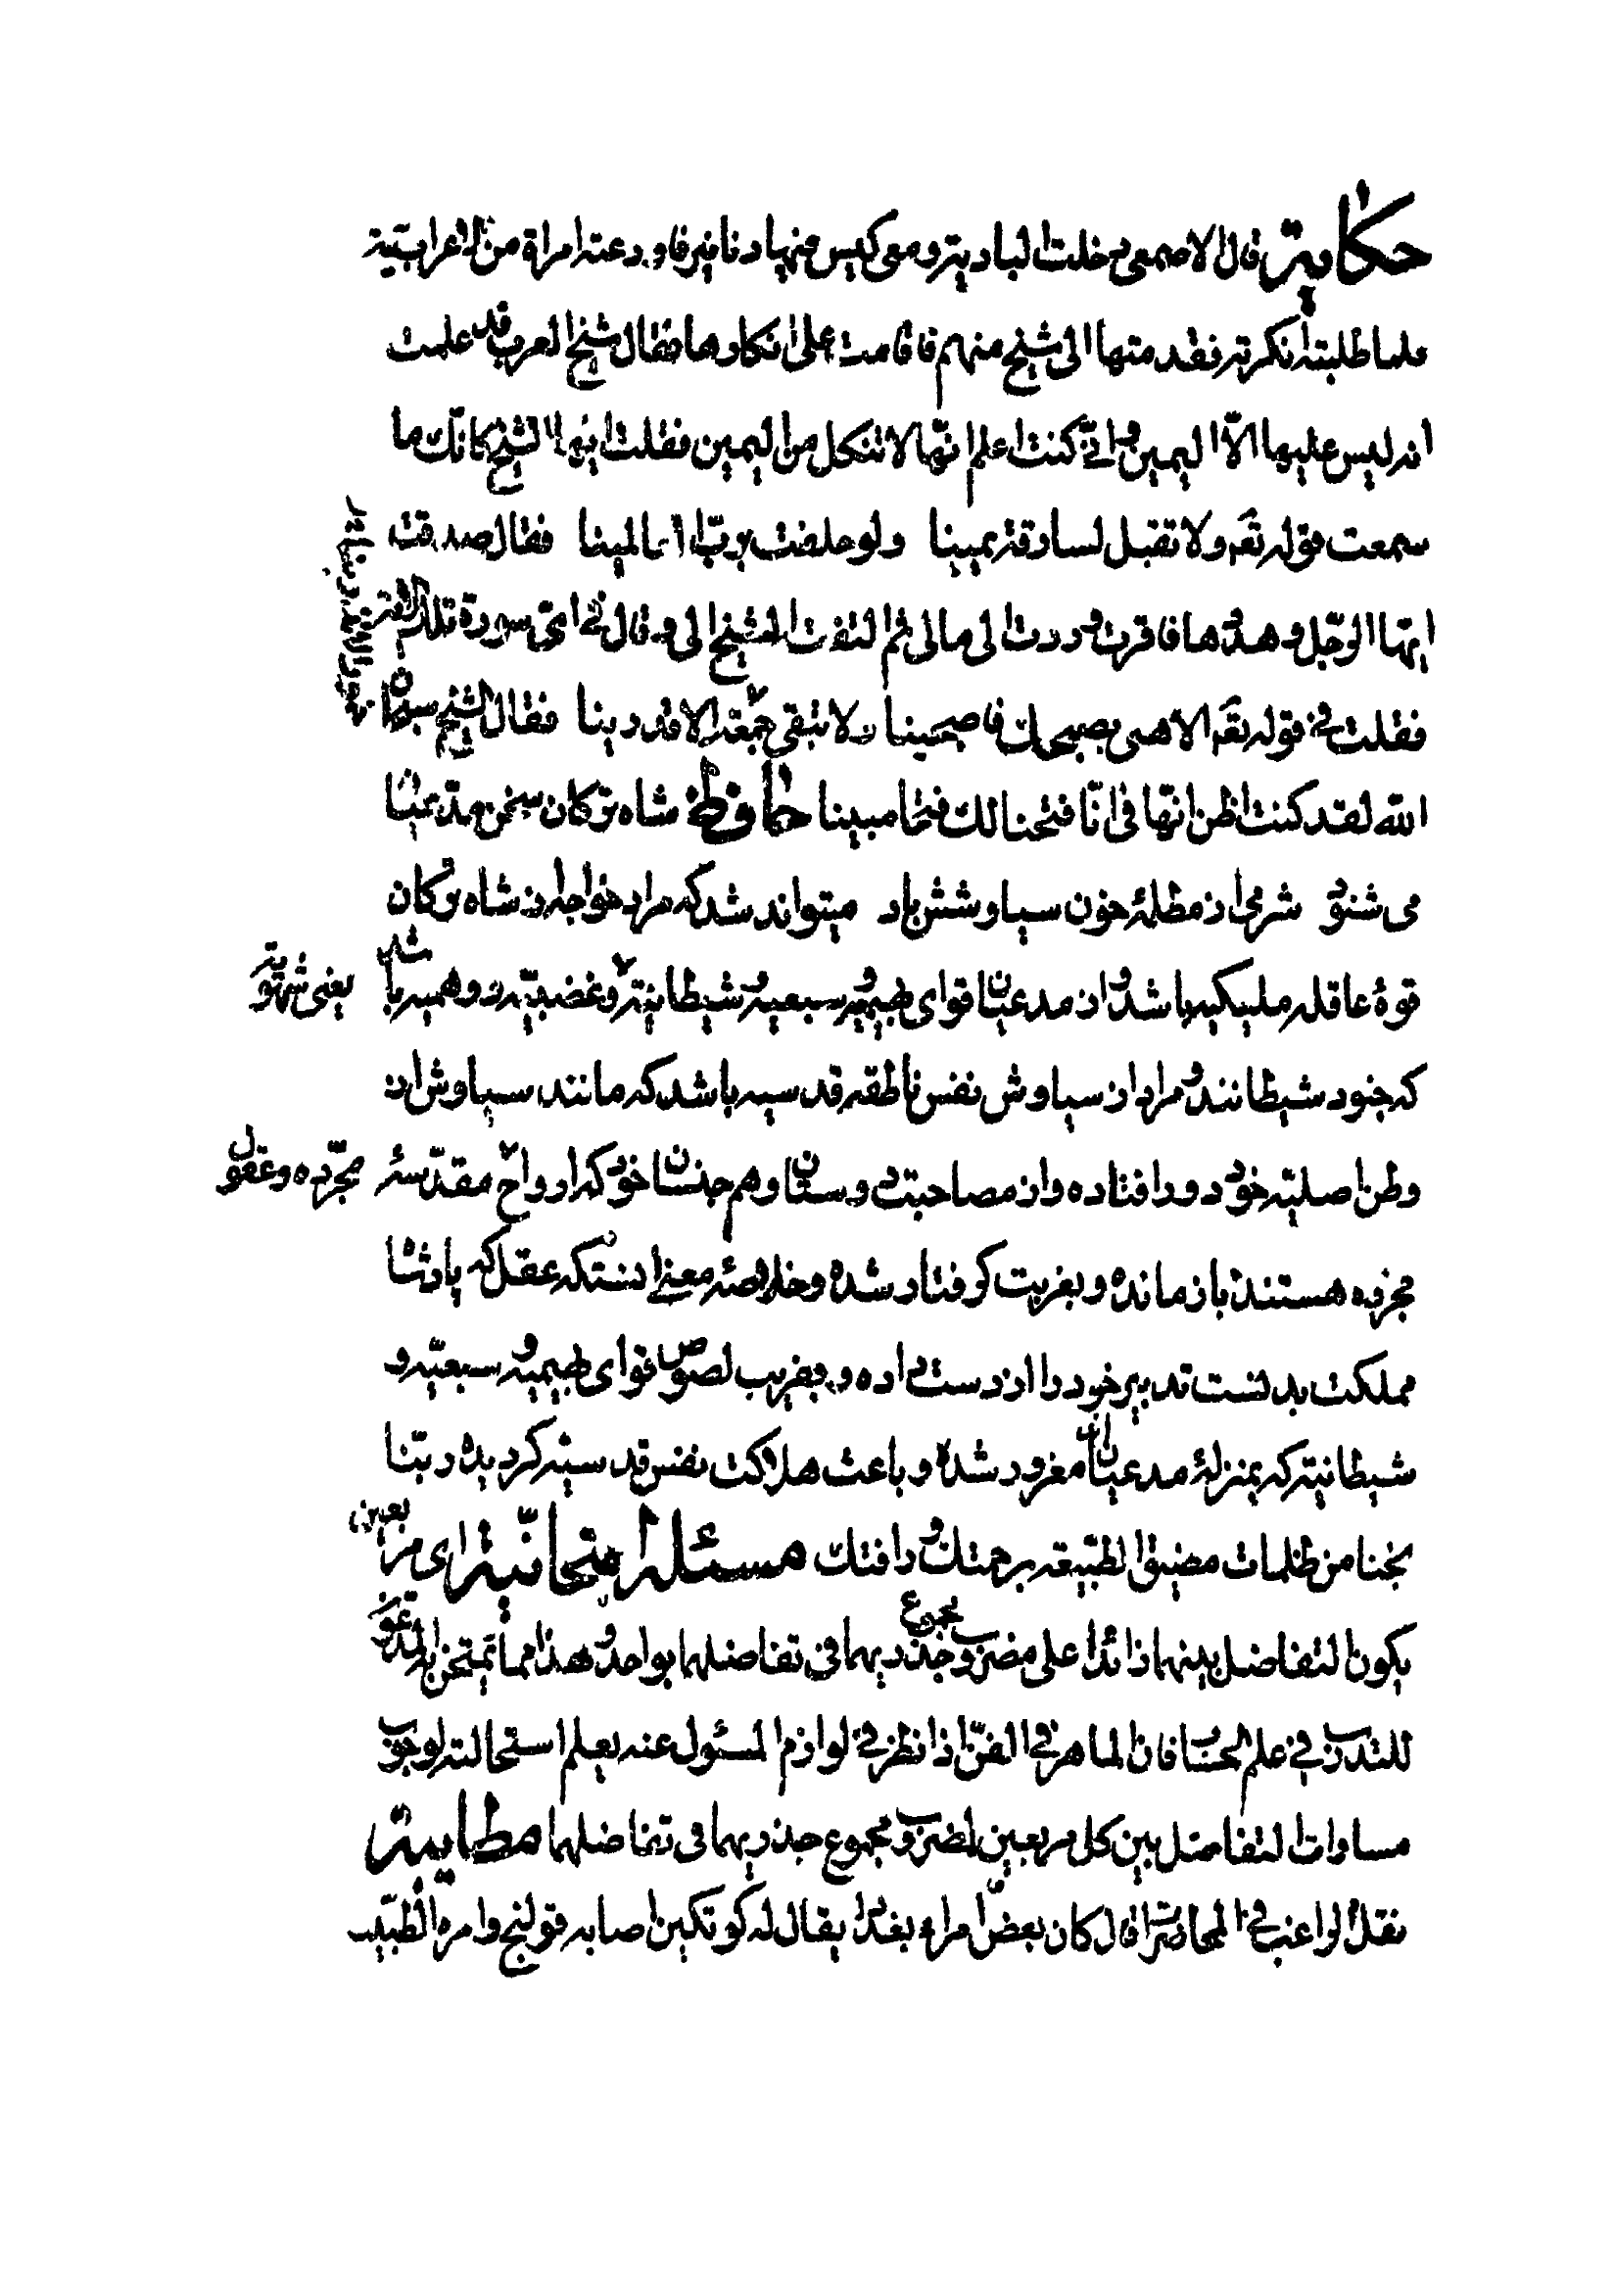 حکایة قال الاصمعی دخلت البادیة و معی کیس فیها دنانیر فاودعته امراة من الاعرابیة
فلما طلبته انکرته فقدمتها الی شیخ منهم فاقامت علی انکارها فقال شیخ العرب قد علمت
انه لیس علیها الّا الیمین و انّی کنت اعلم انّها لا تنکل من الیمین فقلت ایّها الشیخ کانّک ما
سمعت قوله تعه و لا تقبل لسارقة یمینا و لو حلفت بربّ العالمینا فقال صدقت
ایّها الرّجل و هدّدها فاقرت و ردت الی مالی ثم التفت الشیخ الی و قال فی ای سورة تلک الایة
فقلت فی قوله تعه الا هبی بصحنک فاصبحینا و لا تبقی خمور الاندرینا فقال الشیخ سبحان
خمور الاندرینا
الله لقد کنت اظن انّها فی انّا فتحنا لک فتحا مبینا حافظ شاه ترکان سخن مدّعیان
می شنود شرمی از مظلمهٔ خون سیاوشش باد میتواند شد که مراد خواجه از شاه ترکان
قوهٔ عاقلهٔ ملیکیه باشد و از مدعیان قوای بهیمیه و سبعیه و شیطانیة و غضبیّه و وهمیه باشد یعنی شهویّة
که جنود شیطانند و مراد از سیاوش نفس ناطقه قدسیه باشد که مانند سیاوش از
وطن اصلیّه خود دور افتاده و از مصاحبت دوستان و هم جنسان خود که ارواح مقدّسهٔ مجرّده و عقول
مجرده هستند باز مانده و بغربت گرفتار شده و خلاصهٔ معنی انستکه عقل که پادشاه
مملکت بدنست تدبیر خود را از دست داده و بفریب لصوص قوای بهیمیه و سبعیّه و
شیطانیة که بمنزلهٔ مدعیان مغرور شده و باعث هلاکت نفس قدسیّه گردیده ربّنا
نجنا من ظلمات مضیق الطبیعه برحمتک و رافتک مسئلة امتحانیّة ای مربعین
یکون التفاضل بینهما زائدا علی مضرب مجموع جذریهما فی تفاضلهما بواحد و هذا مما یمتحن به المدعون
للتدرب فی علم الحساب فان الماهر فی الفنّ اذا نظر فی لوازم المسئول عنه یعلم استحالته لوجوب
مساوات التفاضل بین کل مربعین لمضروب مجموع جذریهما فی تفاضلهما مطایبة
نقل الراغب فی المحاضرات قال کان بعض امراء بغداد یقال له کوتکین اصابه قولنج و امره الطبیب